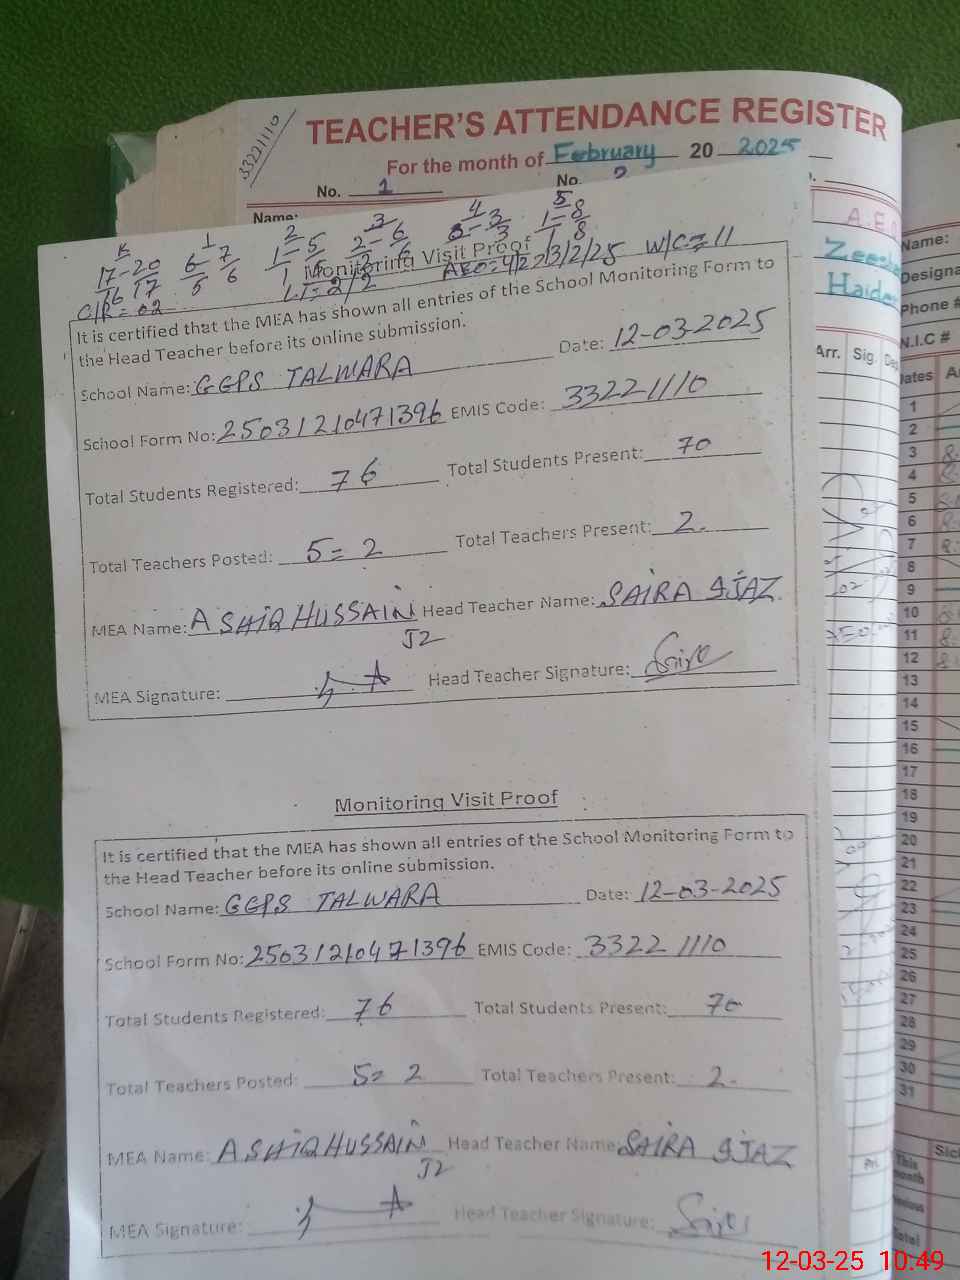 33221110
TEACHER'S ATTENDANCE REGISTER
For the month of February 20 2025
No. 1 No. 2
Name:
K 1 2 3 4 5
17-20 6-7 1-5 2-6 3-3 1-8
16 17 5 6 1 5 2 6 3 3 1 8
Monitoring Visit Proof
C/R = 02 LT = 2/2 AEO=4/2=13/2/25 W/C=11
It is certified that the MEA has shown all entries of the School Monitoring Form to
the Head Teacher before its online submission.
School Name: GGPS TALWARA Date: 12-03-2025
School Form No: 25031210471396 EMIS Code: 33221110
Total Students Registered: 76 Total Students Present: 70
Total Teachers Posted: 5= 2 Total Teachers Present: 2.
MEA Name: ASHIQ HUSSAIN Head Teacher Name: SAIRA IJAZ
J2
MEA Signature: Head Teacher Signature:
Monitoring Visit Proof
It is certified that the MEA has shown all entries of the School Monitoring Form to
the Head Teacher before its online submission.
School Name: GGPS TALWARA Date: 12-03-2025
School Form No: 25031210471396 EMIS Code: 33221110
Total Students Registered: 76 Total Students Present: 70
Total Teachers Posted: 5= 2 Total Teachers Present: 2.
MEA Name: ASHIQ HUSSAIN Head Teacher Name: SAIRA IJAZ
J2
MEA Signature: Head Teacher Signature:
A.E.O
Haider
Arr. Sig.
Name:
Phone #
N.I.C #
1
2
3
4
5
6
7
8
9
10
11
12
13
14
15
16
17
18
19
20
21
22
23
24
25
26
27
28
29
30
31
This
month
12-03-25 10.49